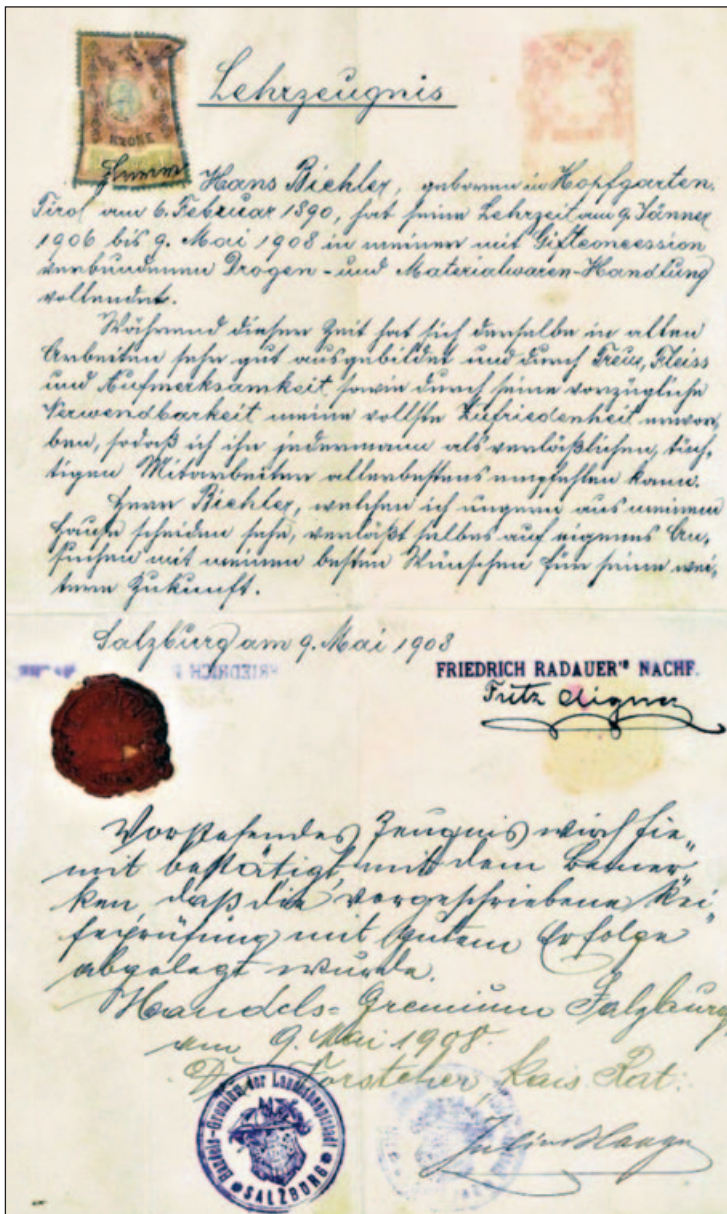 KRONE
Lehrzeugnis
Hans Biehler, geboren in Hopfgarten,
Tirol am 6. Februar 1890, hat seine Lehrzeit am 9. Jänner
1906 bis 9. Mai 1908 in meiner mit Giftconcession
verbundenen Drogen- und Materialwaren-Handlung
vollendet.
Während dieser Zeit hat sich derselbe in allen
Arbeiten sehr gut ausgebildet und durch Treue, Fleiss
und Aufmerksamkeit, sowie durch seine vorzügliche
Verwendbarkeit meine vollste Zufriedenheit erwor-
ben, sodaß ich ihn jedermann als verläßlichen, tüch-
tigen Mitarbeiter allerbestens empfehlen kann.
Herr Biehler, welchen ich ungern aus meinem
Hause scheiden sehe, verläßt selbes auf eigenes An-
suchen mit meinen besten Wünschen für seine wei-
tere Zukunft.
Salzburg am 9. Mai 1908
FRIEDRICH
FRIEDRICH RADAUER'S NACHF.
Fritz Aigner
Vorstehendes Zeugnis wird hie-
mit bestätigt, mit dem Bemer-
ken, daß die vorgeschriebene Rei-
feprüfung mit gutem Erfolge
abgelegt wurde.
Handels-Gremium Salzburg,
am 9. Mai 1908.
Der Vorsteher, Kais. Rat:
Handels-Gremium der Landeshauptstadt
SALZBURG
Julius Haagn